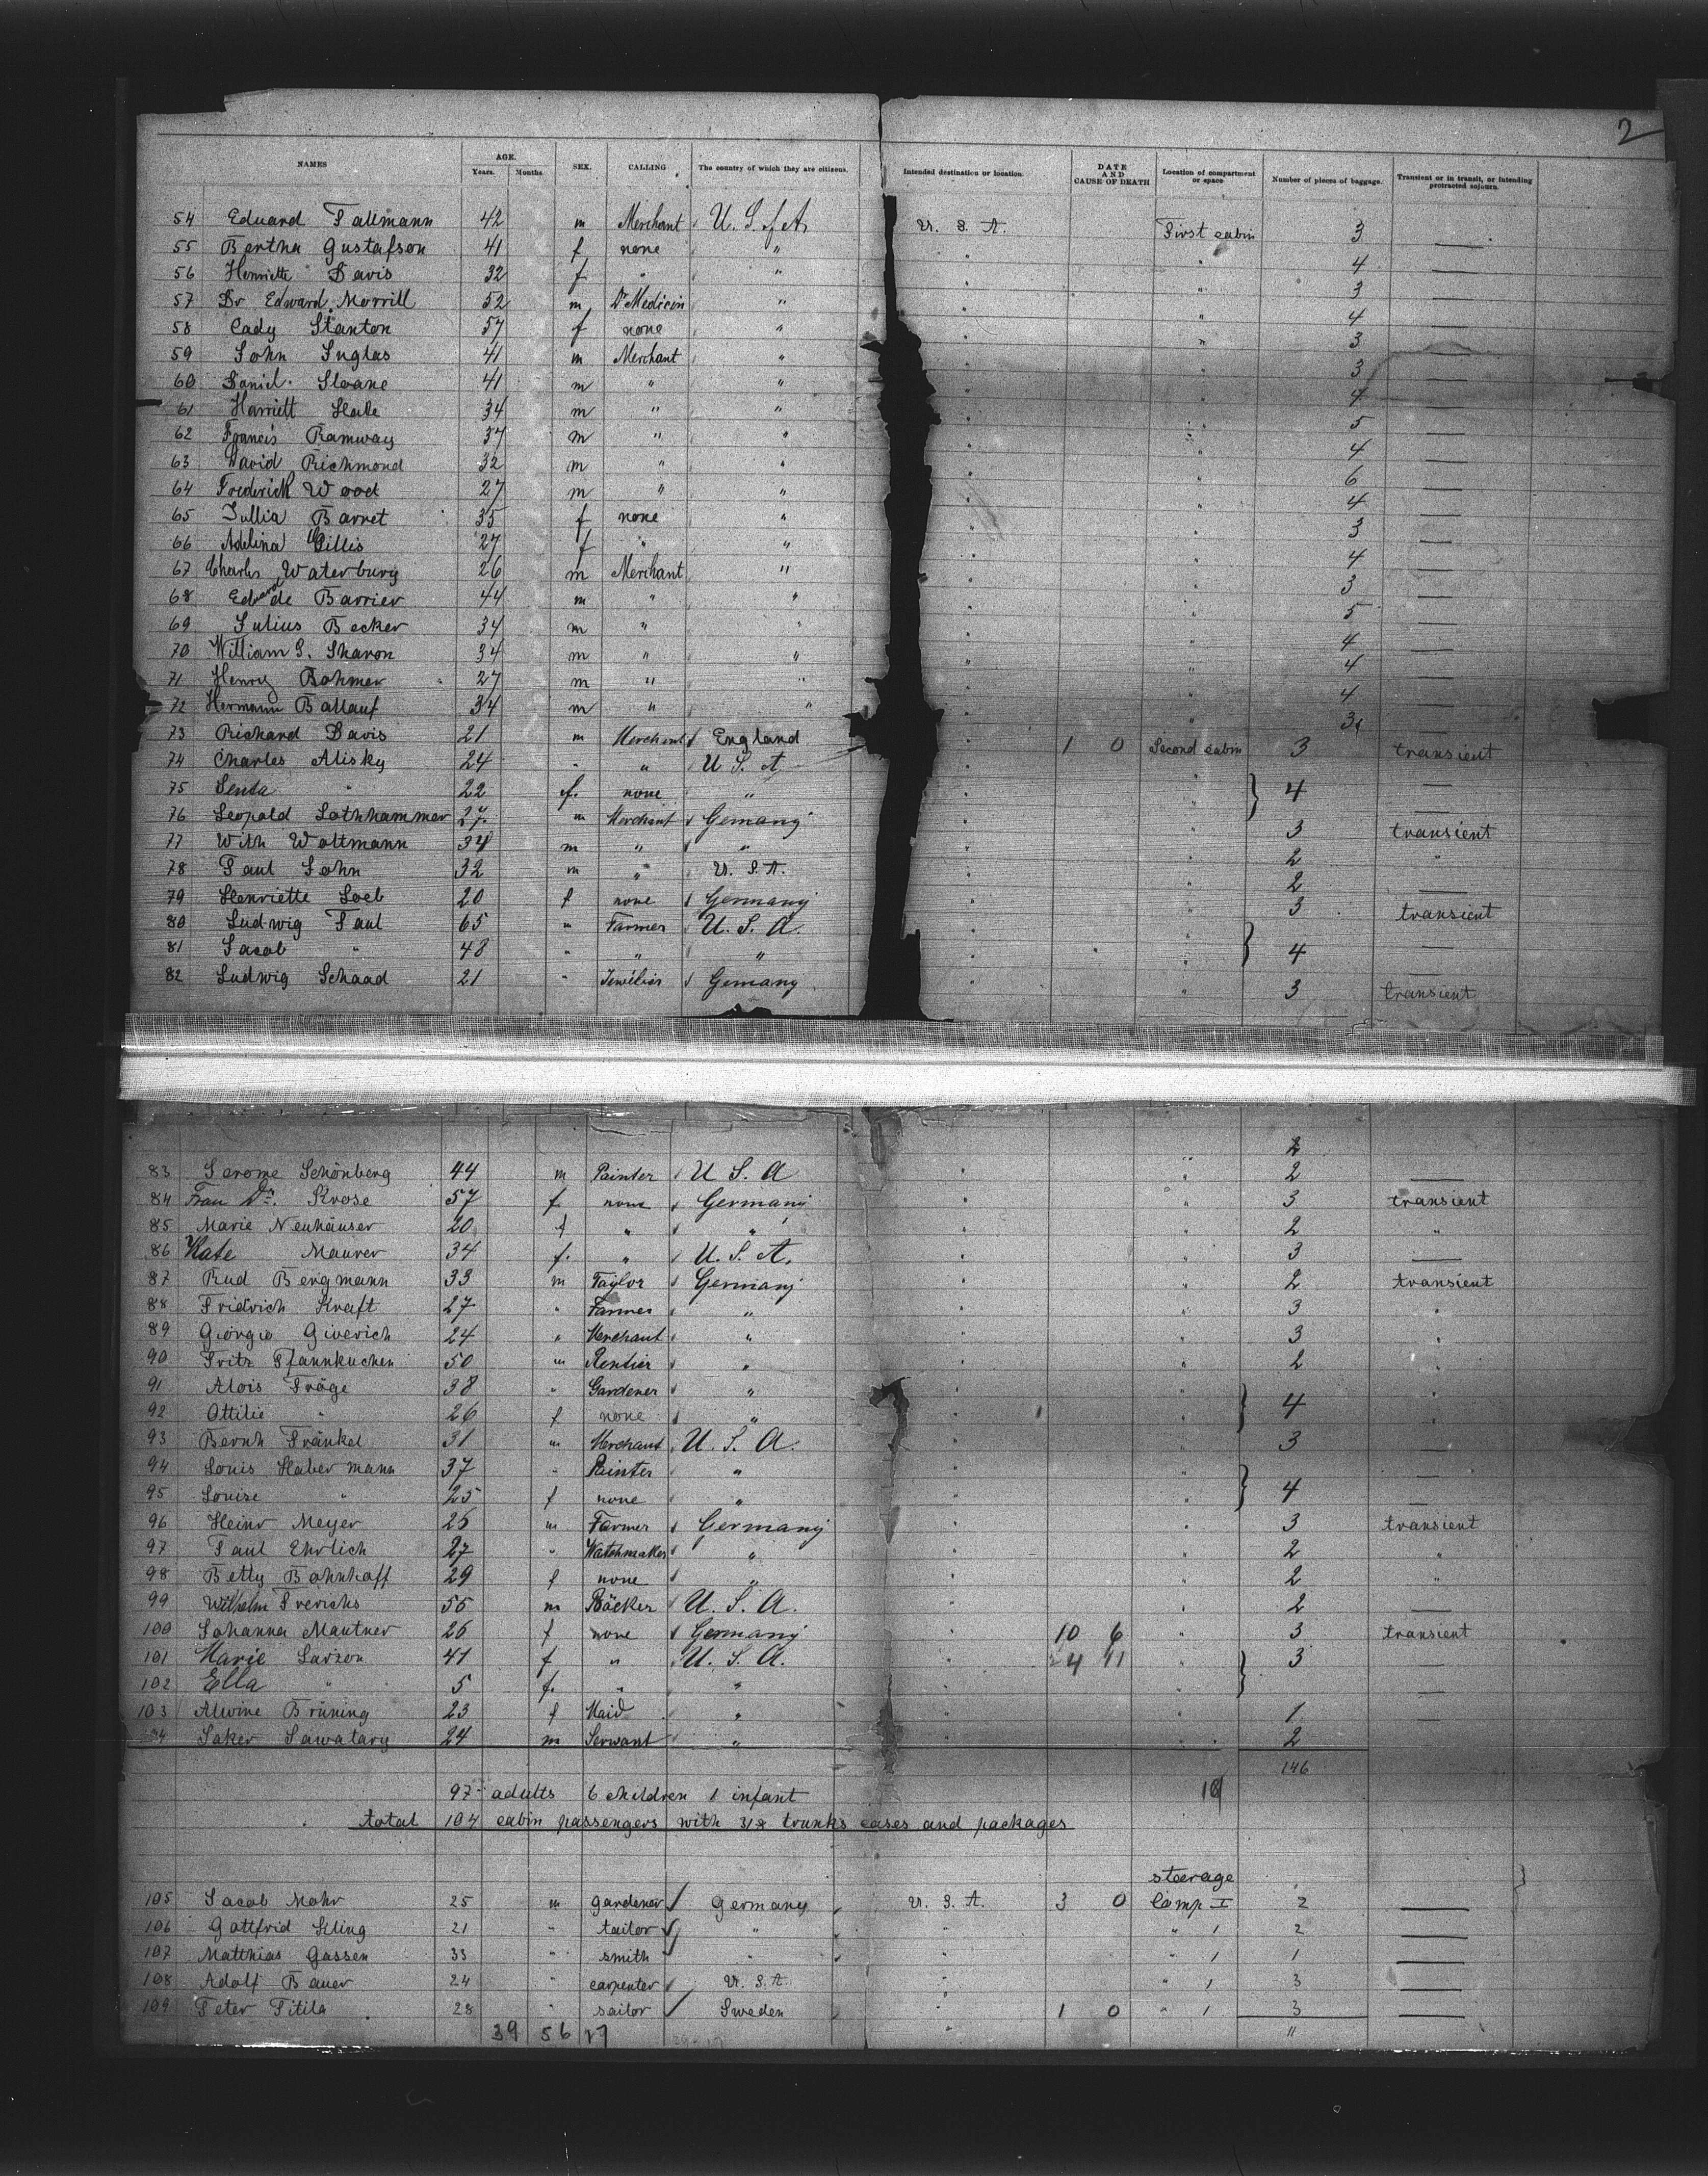 2
NAMES AGE. Years. Months. SEX. CALLING The country of which they are citizens. Intended destination or location. DATE AND CAUSE OF DEATH Location of compartment or space Number of pieces of baggage. Transient or in transit, or intending protracted sojourn.
54 Eduard Tallmann 42 m Merchant U. S. of A. U. S. A. First cabin 3 —
55 Bertha Gustafson 41 f none " " " 4 —
56 Henriette Davis 32 f " " " " 3 —
57 Dr Edward Morrill 52 m Dr Medicin " " " 4 —
58 Cady Stanton 57 f none " " " 3 —
59 John Inglas 41 m Merchant " " " 3 —
60 Daniel Sloane 41 m " " " " 4 —
61 Harriett Hale 34 m " " " " 5 —
62 Francis Ramway 37 m " " " " 4 —
63 David Richmond 32 m " " " " 6 —
64 Frederick Wood 27 m " " " " 4 —
65 Jullia Barret 35 f none " " " 3 —
66 Adelina Gillis 27 f " " " " 4 —
67 Charles Waterbury 26 m Merchant " " " 3 —
68 Edward de Barrier 44 m " " " " 5 —
69 Julius Becker 34 m " " " " 4 —
70 William S. Sharon 34 m " " " " 4 —
71 Henry Bohmer 27 m " " " " 4 —
72 Hermann Ballauf 34 m " " " " 3
73 Richard Davis 21 m Merchant England " 1 0 Second cabin 3 transient
74 Charles Alisky 24 " " U S A " "
75 Senta " 22 f. none " " " } 4 —
76 Leopold Lothhammer 27 m Merchant Gemany " " 3 transient
77 Wilh Woltmann 34 m " " " " 2 "
78 Paul John 32 m " U. S. A. " " 2 —
79 Henriette Loeb 20 f none Germany " " 3 transient
80 Ludwig Paul 65 " Farmer U. S. A. " "
81 Jacob " 48 " " " " " } 4 —
82 Ludwig Schaad 21 " Jewélier Gemany " " 3 transient
2
83 Jerome Schönberg 44 m Painter U S A " " 2 —
84 Frau Dr. Krose 57 f. none Germany " " 3 transient
85 Marie Neuhäuser 20 f " " " " 2 "
86 Kate Maurer 34 f. " U. S. A. " " 3 —
87 Rud Bergmann 33 m Taylor Germany " " 2 transient
88 Fridrich Kraft 27 " Farmer " " " 3 "
89 Giorgio Giverich 24 " Merchant " " " 3 "
90 Fritz Pfannkuchen 50 m Rentier " " " 2 "
91 Alois Fröge 38 " Gardener " " " "
92 Ottilie " 26 f none " " " } 4 "
93 Bernh Fränkel 31 m Merchant U. S. A. " " 3 —
94 Louis Habermann 37 " Painter " " " —
95 Louise " 25 f none " " " } 4 —
96 Heinr Meyer 26 m Farmer Germany " " 3 transient
97 Paul Ehrlich 27 " Watchmaker " " " 2 "
98 Betty Bohnhoff 29 f none " " " 2 "
99 Wilhelm Frerichs 55 m Bäcker U. S. A. " " 2 —
100 Johanna Mautner 26 f none Germany " 10 6 " 3 transient
101 Marie Larson 41 f " U. S. A. " 4 11 " } 3 —
102 Ella " 5 f. " " " " —
103 Alwine Brüning 23 f Maid " " " 1 —
104 Saker Sawatary 24 m Servant " " " 2
146
97 adults 6 children 1 infant 18
total 104 cabin passengers with 318 trunks cases and packages
steerage
105 Jacob Mohr 25 m gardener Germany U. S. A. 3 0 Comp I 2 —
106 Gottfrid Kling 21 " tailor " " " 1 2 —
107 Matthias Gassen 33 " smith " " " 1 1 —
108 Adolf Bauer 24 " carpenter U. S. A. " " 1 3 —
109 Peter Pitila 28 " sailor Sweden " 1 0 " 1 3 —
39 56 17 11